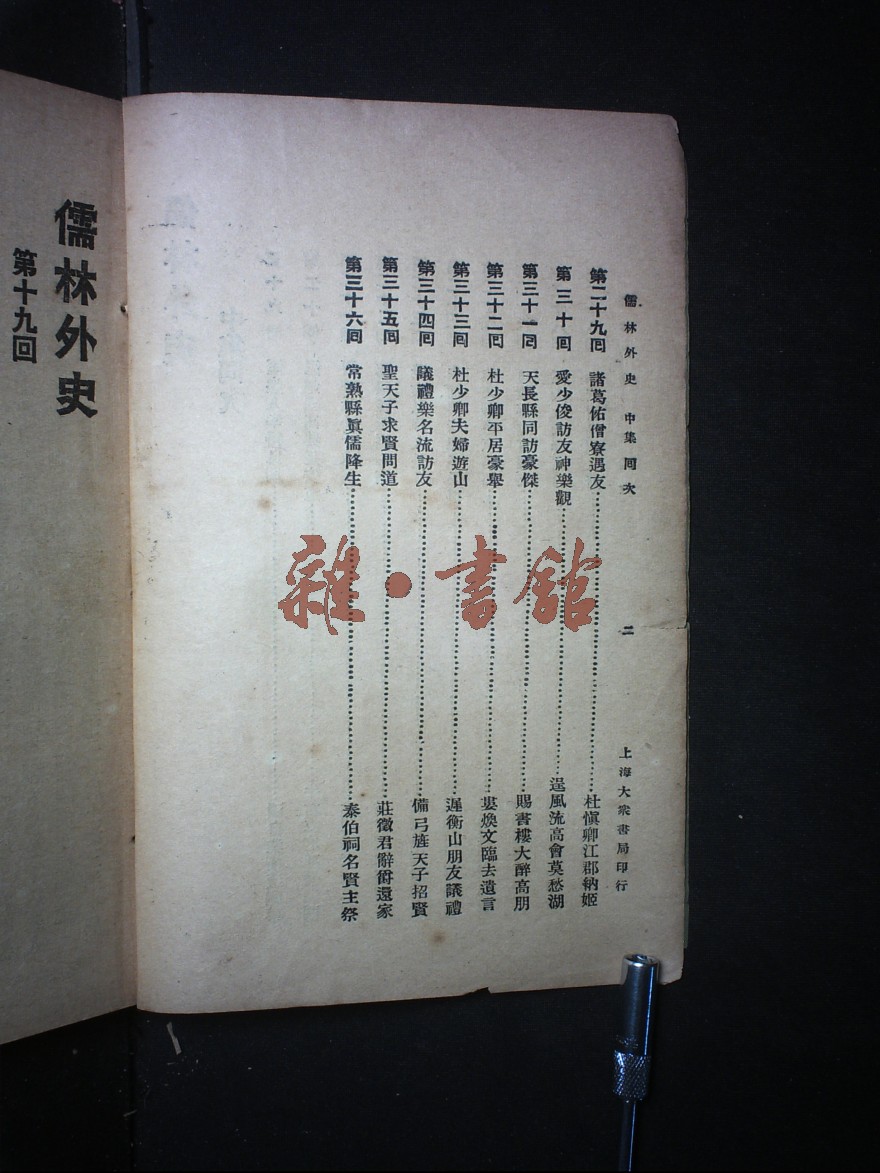 儒林外史 中集 回次 二 上海大衆書局印行
第二十九回 諸葛佑僧寮遇友 杜慎卿江郡納姬
第三十回 愛少俊訪友神樂觀 逞風流高會莫愁湖
第三十一回 天長縣同訪豪傑 賜書樓大醉高朋
第三十二回 杜少卿平居豪舉 婁煥文臨去遺言
第三十三回 杜少卿夫婦遊山 遲衡山朋友議禮
第三十四回 議禮樂名流訪友 備弓旌天子招賢
第三十五回 聖天子求賢問道 莊徵君辭爵還家
第三十六回 常熟縣眞儒降生 泰伯祠名賢主祭
儒林外史
第十九回
雜·書館